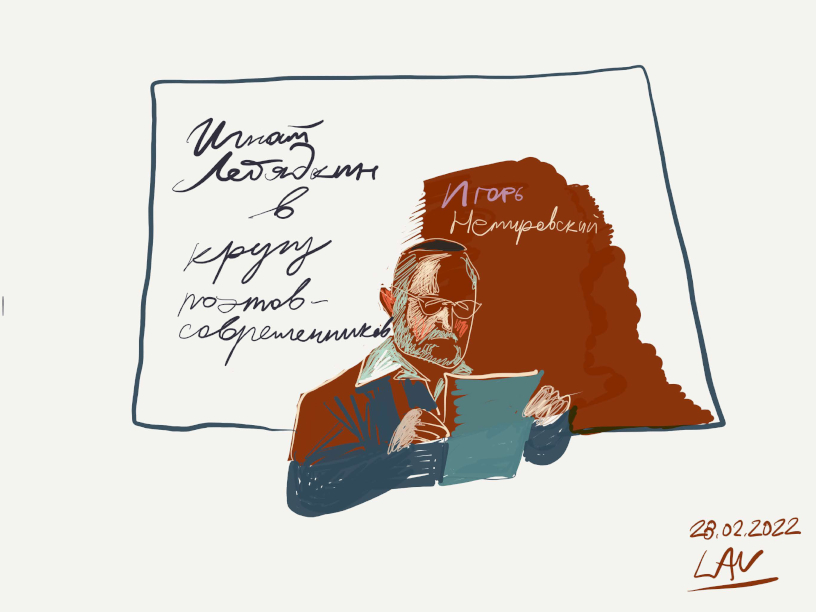 Игнат
Лебядкин
в
кругу
поэтов-
современников
Игорь
Немировский
28.02.2022
LAV